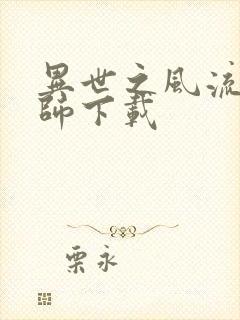 異世之風流
師下載
栗永